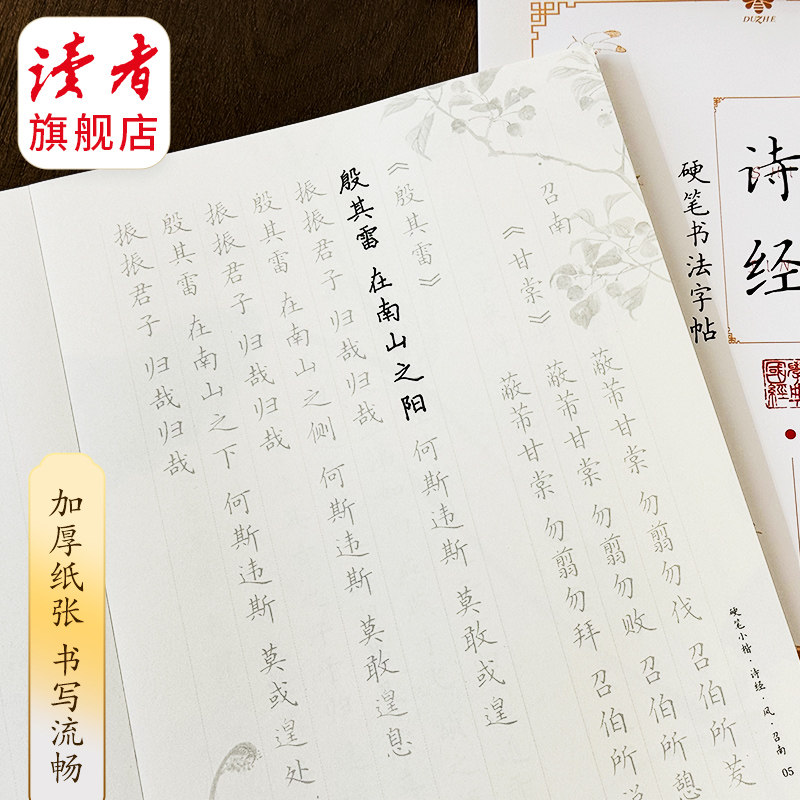 读者
旗舰店
DUZHE
诗经
硬笔书法字帖
召南
《甘棠》
蔽芾甘棠 勿翦勿伐 召伯所茇
蔽芾甘棠 勿翦勿败 召伯所憩
蔽芾甘棠 勿翦勿拜 召伯所
《殷其雷》
殷其雷 在南山之阳 何斯违斯 莫敢或遑
振振君子 归哉归哉
殷其雷 在南山之侧 何斯违斯 莫敢遑息
振振君子 归哉归哉
殷其雷 在南山之下 何斯违斯 莫或遑处
振振君子 归哉归哉
硬笔小楷·诗经·风·召南 05
加厚纸张 书写流畅